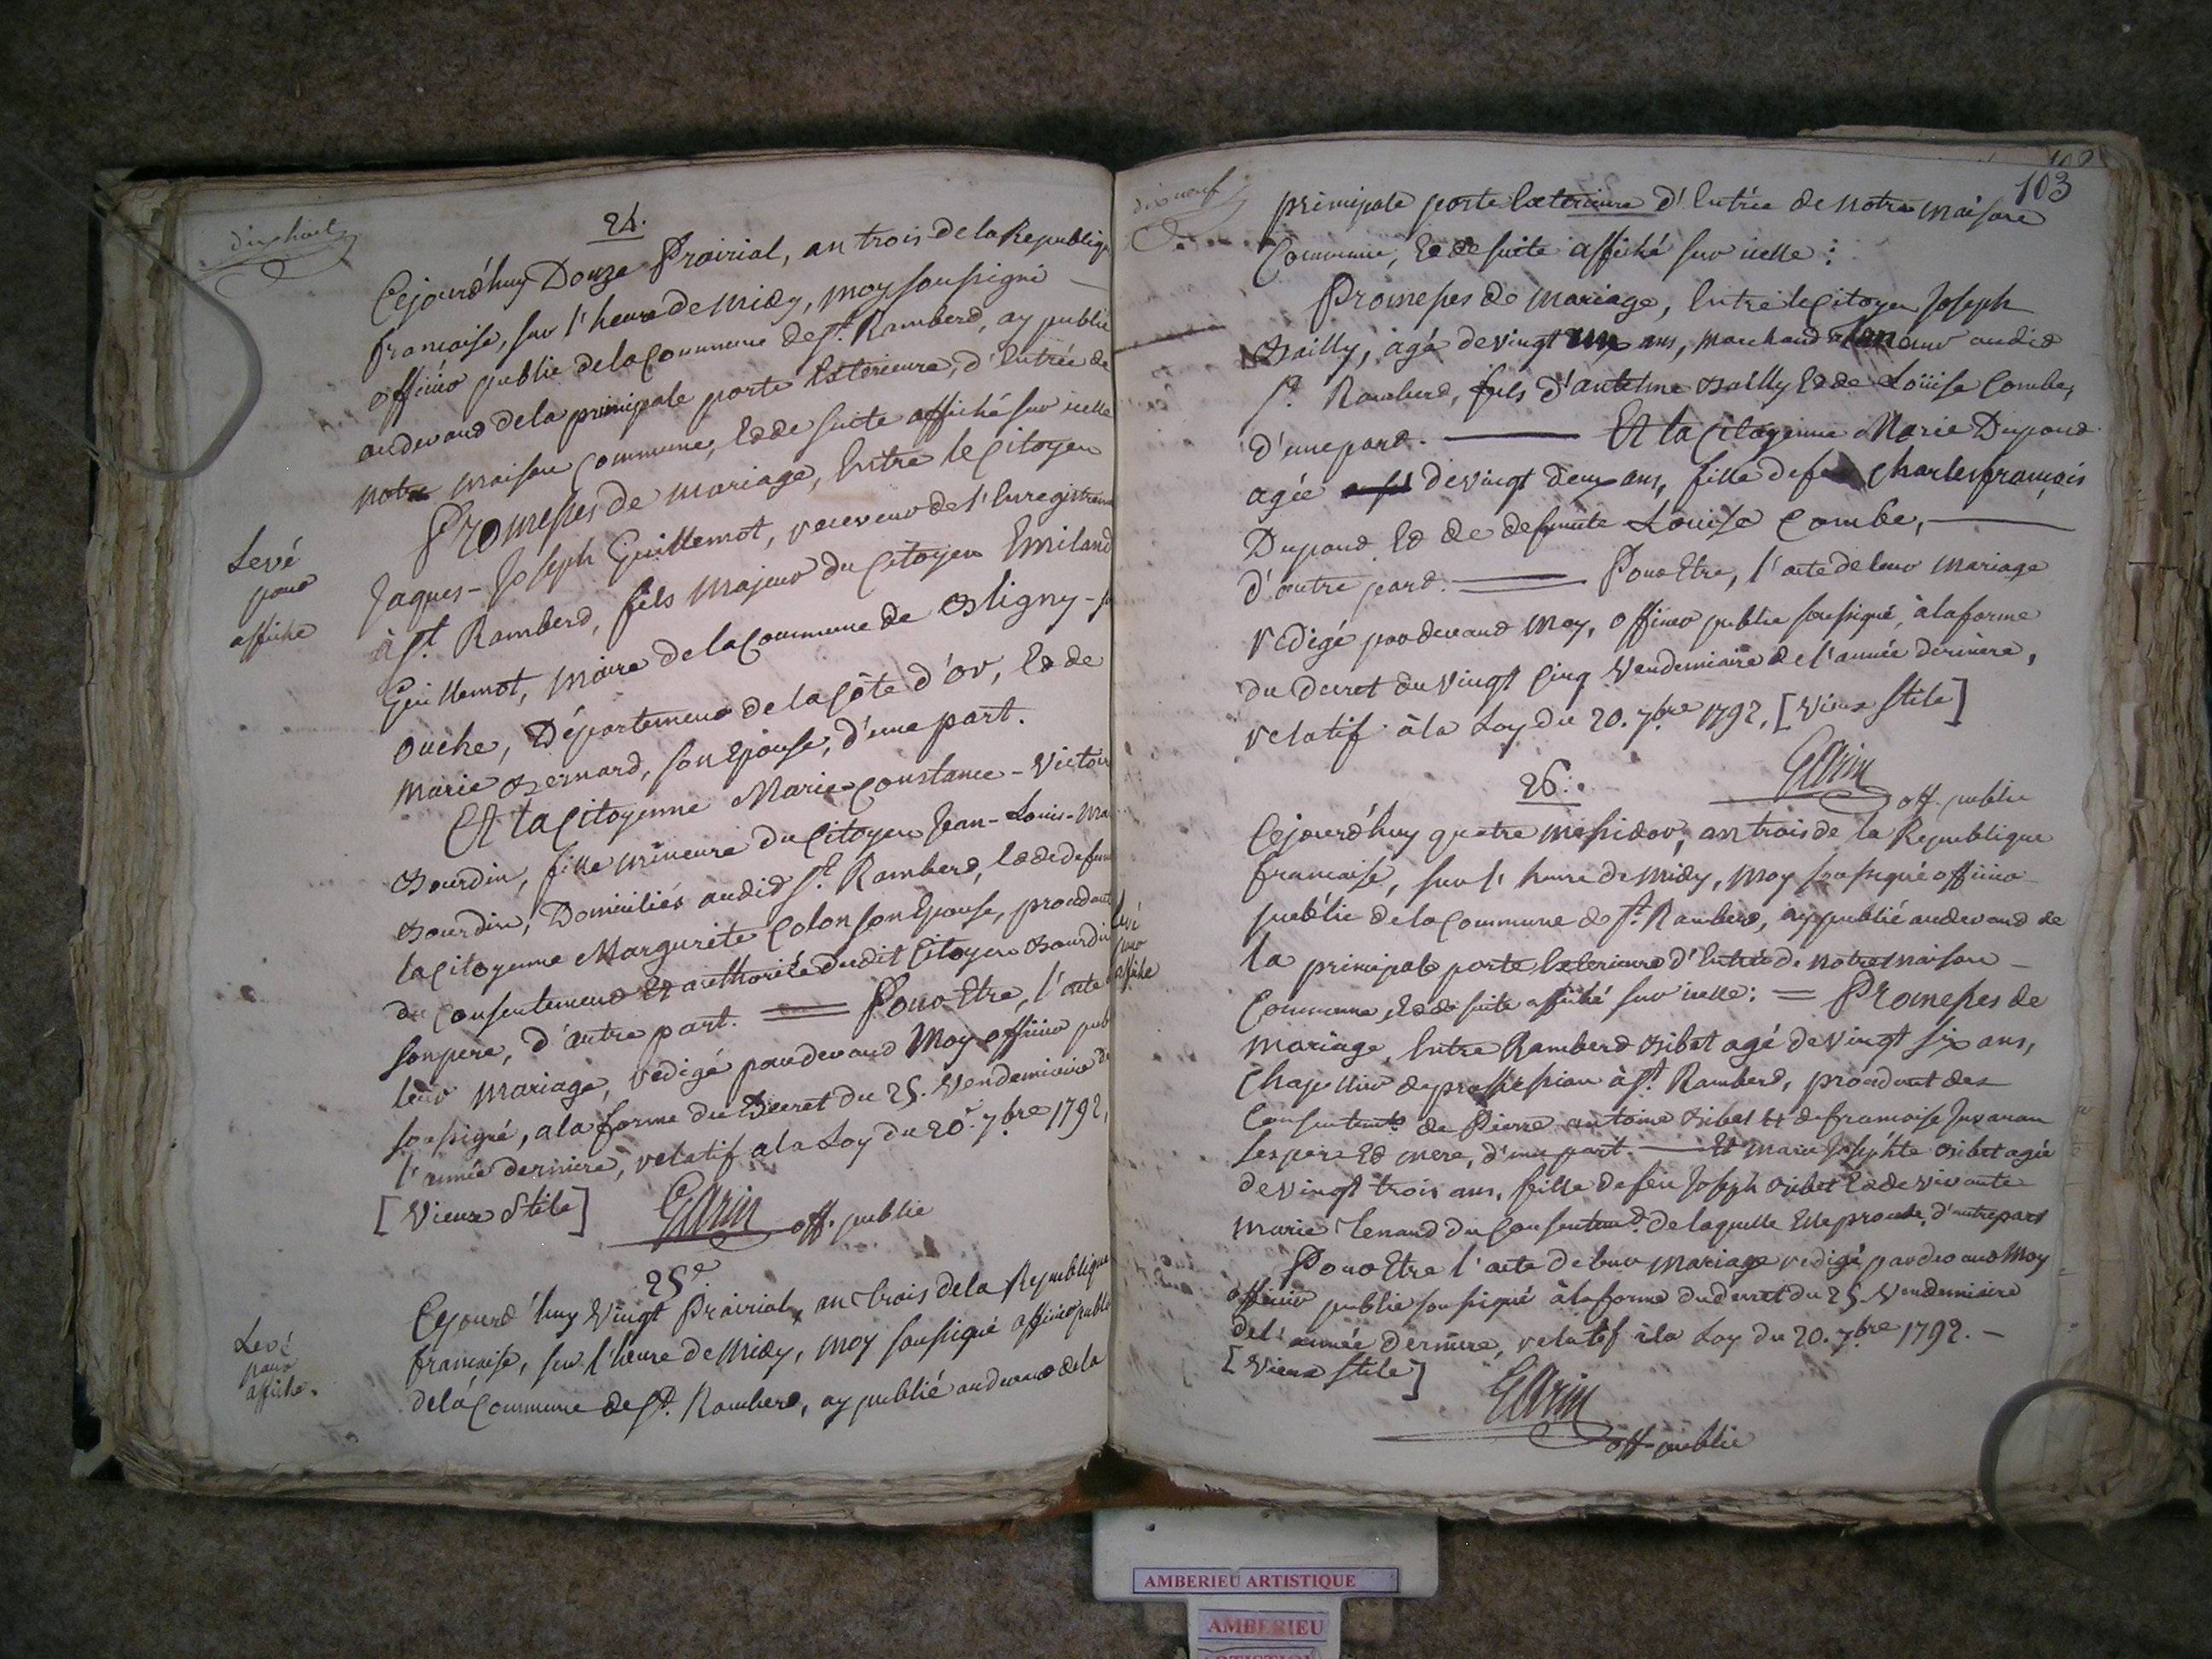 dixhuit
24.
Cejourd'huy Douze Prairial, an trois de la Republiq
francaise, sur l'heure de Midy, moy soussigné
officier public de la Commune de St. Rambert, ay publié
audevant de la principale porte Exterieure, d'Entrée de
notre maison Commune, Et de suite affiché sur icelle
Promesses de mariage, Entre le Citoyen
Jaques-Joseph Guillemot, receveur de l'Enregistrem
à St. Rambert, fils majeur du Citoyen Emiland
Guillemot, Maire de la Commune de Bligny-s
Ouche, Département de la Côte d'or, Et de
Marie Bernard, son Epouse, d'une part.
Et la Citoyenne Marie-Constance-Victoir
Bourdin, fille mineure du Citoyen Jean-Louis-Ma
Bourdin, Domiciliés audit St. Rambert, Et de defun
la Citoyenne Margurite Colon son Epouse, procédant
du Consentement Et authorité dudit Citoyen Bourdin
son pere, d'autre part. Pour Etre, l'acte
leur mariage, redigé pardevant Moy officier pub
soussigné, a la forme du Decret du 25. Vendemiaire de
l'année derniere, relatif a la Loy du 20. 7bre 1792,
[Vieux Stile]
Garin off. public
Levé
pour
affiche
25e.
Cejourd'huy Vingt Prairial, an trois de la Republique
francaise, sur l'heure de Midy, moy soussigné officier public
de la Commune de St. Rambert, ay publié audevant de la
Levé
pour
affiche.
dixneuf
103
principale porte Exterieure d'Entrée de notre maison
Commune, Et de suite affiché sur icelle:
Promesses de Mariage, Entre le Citoyen Joseph
Bailly, agé de vingt ans, marchand audit
St. Rambert, fils d'antelme Bailly Et de Loüise Combe,
d'une part. Et la Citoyenne Marie Dupont
agée de vingt deux ans, fille de feu Charles françois
Dupont Et de defunte Louise Combe,
d'autre part. Pour Etre, l'acte de leur Mariage
redigé pardevant Moy, officier public soussigné, à la forme
du decret du Vingt Cinq Vendemiaire de l'année derniere,
relatif à la Loy du 20. 7bre 1792, [Vieux Stile]
Garin
off. public
Levé
pour
affiche
26.
Cejourd'huy quatre Messidor, an trois de la Republique
francaise, sur l'heure de Midy, Moy soussigné officier
public de la Commune de St. Rambert, ay publié audevant de
la principale porte Exterieure d'Entrée de notre maison
Commune, Et de suite affiché sur icelle: = Promesses de
Mariage, Entre Rambert Bibet agé de vingt six ans,
Chapellier de profession à St. Rambert, procédant des
Consentemts. de Pierre antoine Bibet Et de francoise
ses pere Et mere, d'une part. Et Marie Joséphte Bibet agée
de vingt trois ans, fille de feu Joseph Bibet Et de vivante
Marie Tenand du Consentemt. de laquelle Elle procede, d'autre part
Pour Etre l'acte de leur Mariage redigé pardevant Moy
officier public soussigné à la forme du decret du 25. Vendemiaire
de l'année derniere, relatif à la Loy du 20. 7bre 1792.
[Vieux Stile]
Garin
off. public
AMBERIEU ARTISTIQUE
AMBERIEU